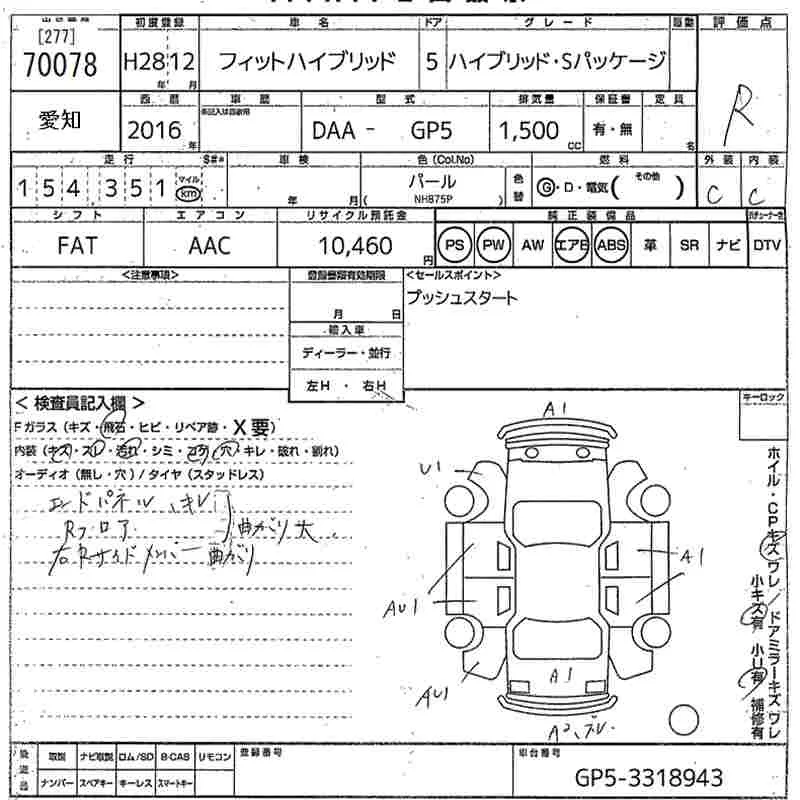 [277]
70078
初度登録
H28 12
年 月
車名
フィットハイブリッド
ドア
5
グレード
ハイブリッド・Sパッケージ
駆動
評価点
R
愛知
西暦
2016
年
車歴
型式
DAA - GP5
排気量
1,500
CC
保証書
有・無
定員
名
走行
154,351
マイル
km
S#*
車検
年 月
色 (Col.No)
パール
( NH875P )
色替
燃料
G・D・電気 ( その他 )
外装
C
内装
C
シフト
FAT
エアコン
AAC
リサイクル預託金
10,460
円
純正装備品
PS PW AW エアB ABS 革 SR ナビ DTV
<注意事項>
登録書類有効期限
月 日
輸入車
ディーラー・並行
左H ・ 右H
<セールスポイント>
プッシュスタート
< 検査員記入欄 >
Fガラス (キズ・飛石・ヒビ・リペア跡・X要)
内装 (キズ・スレ・汚れ・シミ・コゲ・穴・キレ・破れ・割れ)
オーディオ (無し・穴) / タイヤ (スタッドレス)
エンドパネル キレ
Rフロア 曲がり大
右Rサイドメンバー曲がり
キーロック
A1
U1
A1
AU1
AU1
A1
A2、ズレ
ホイル・CPキズ ワレ / ドアミラーキズ ワレ
小キズ有 小U有 補修有
後送品
取説 ナビ取説 ロム/SD B-CAS リモコン
ナンバー スペアキー キーレス スマートキー
登録番号
車台番号
GP5-3318943